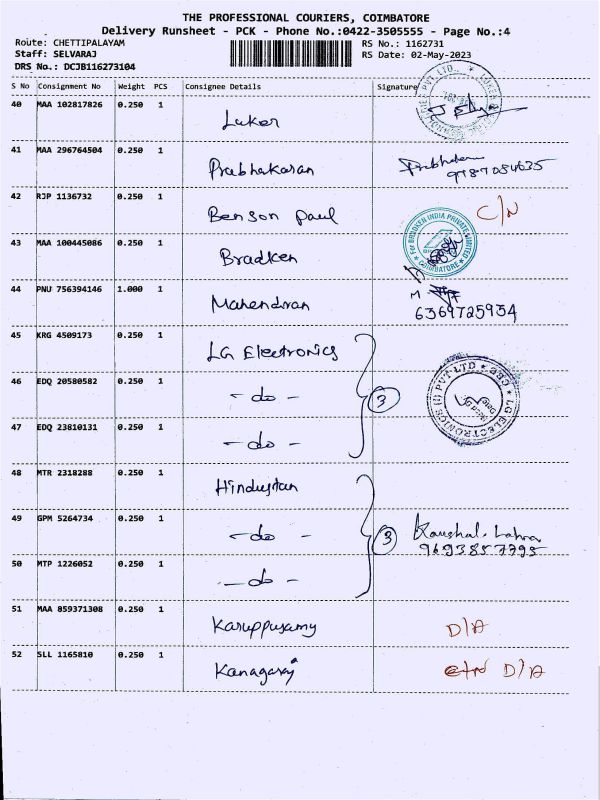 THE PROFESSIONAL COURIERS, COIMBATORE
Delivery Runsheet - PCK - Phone No.:0422-3505555 - Page No.:4
Route: CHETTIPALAYAM RS No.: 1162731
Staff: SELVARAJ RS Date: 02-May-2023
DRS No.: DCJB116273104
S No Consignment No Weight PCS Consignee Details Signature
40 MAA 102817826 0.250 1 Luker
41 MAA 296764504 0.250 1 Prabhakaran
42 RJP 1136732 0.250 1 Benson paul C/N
43 MAA 100445086 0.250 1 Bradken
For BRADKEN INDIA PRIVATE LIMITED
COIMBATORE
44 PNU 756394146 1.000 1 Mahendran M
6369725934
45 KRG 4509173 0.250 1 LG Electronics
46 EDQ 20580582 0.250 1 - do - 3
LG ELECTRONICS (I) PVT LTD
47 EDQ 23810131 0.250 1 - do -
48 MTR 2318288 0.250 1 Hindustan
49 GPM 5264734 0.250 1 - do - 3 Kaushal
9693857795
50 MTP 1226052 0.250 1 - do -
51 MAA 859371308 0.250 1 Karuppusamy D/A
52 SLL 1165810 0.250 1 Kanagaraj D/A